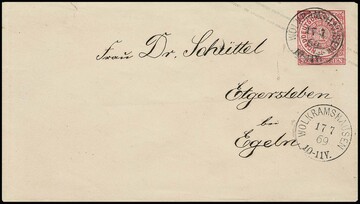 WOLKRAMSHAUSEN
17 7
69
10-11V.
Frau Dr. Schüttel
Etgersleben
bei
Egeln
WOLKRAMSHAUSEN
17 7
69
10-11V.